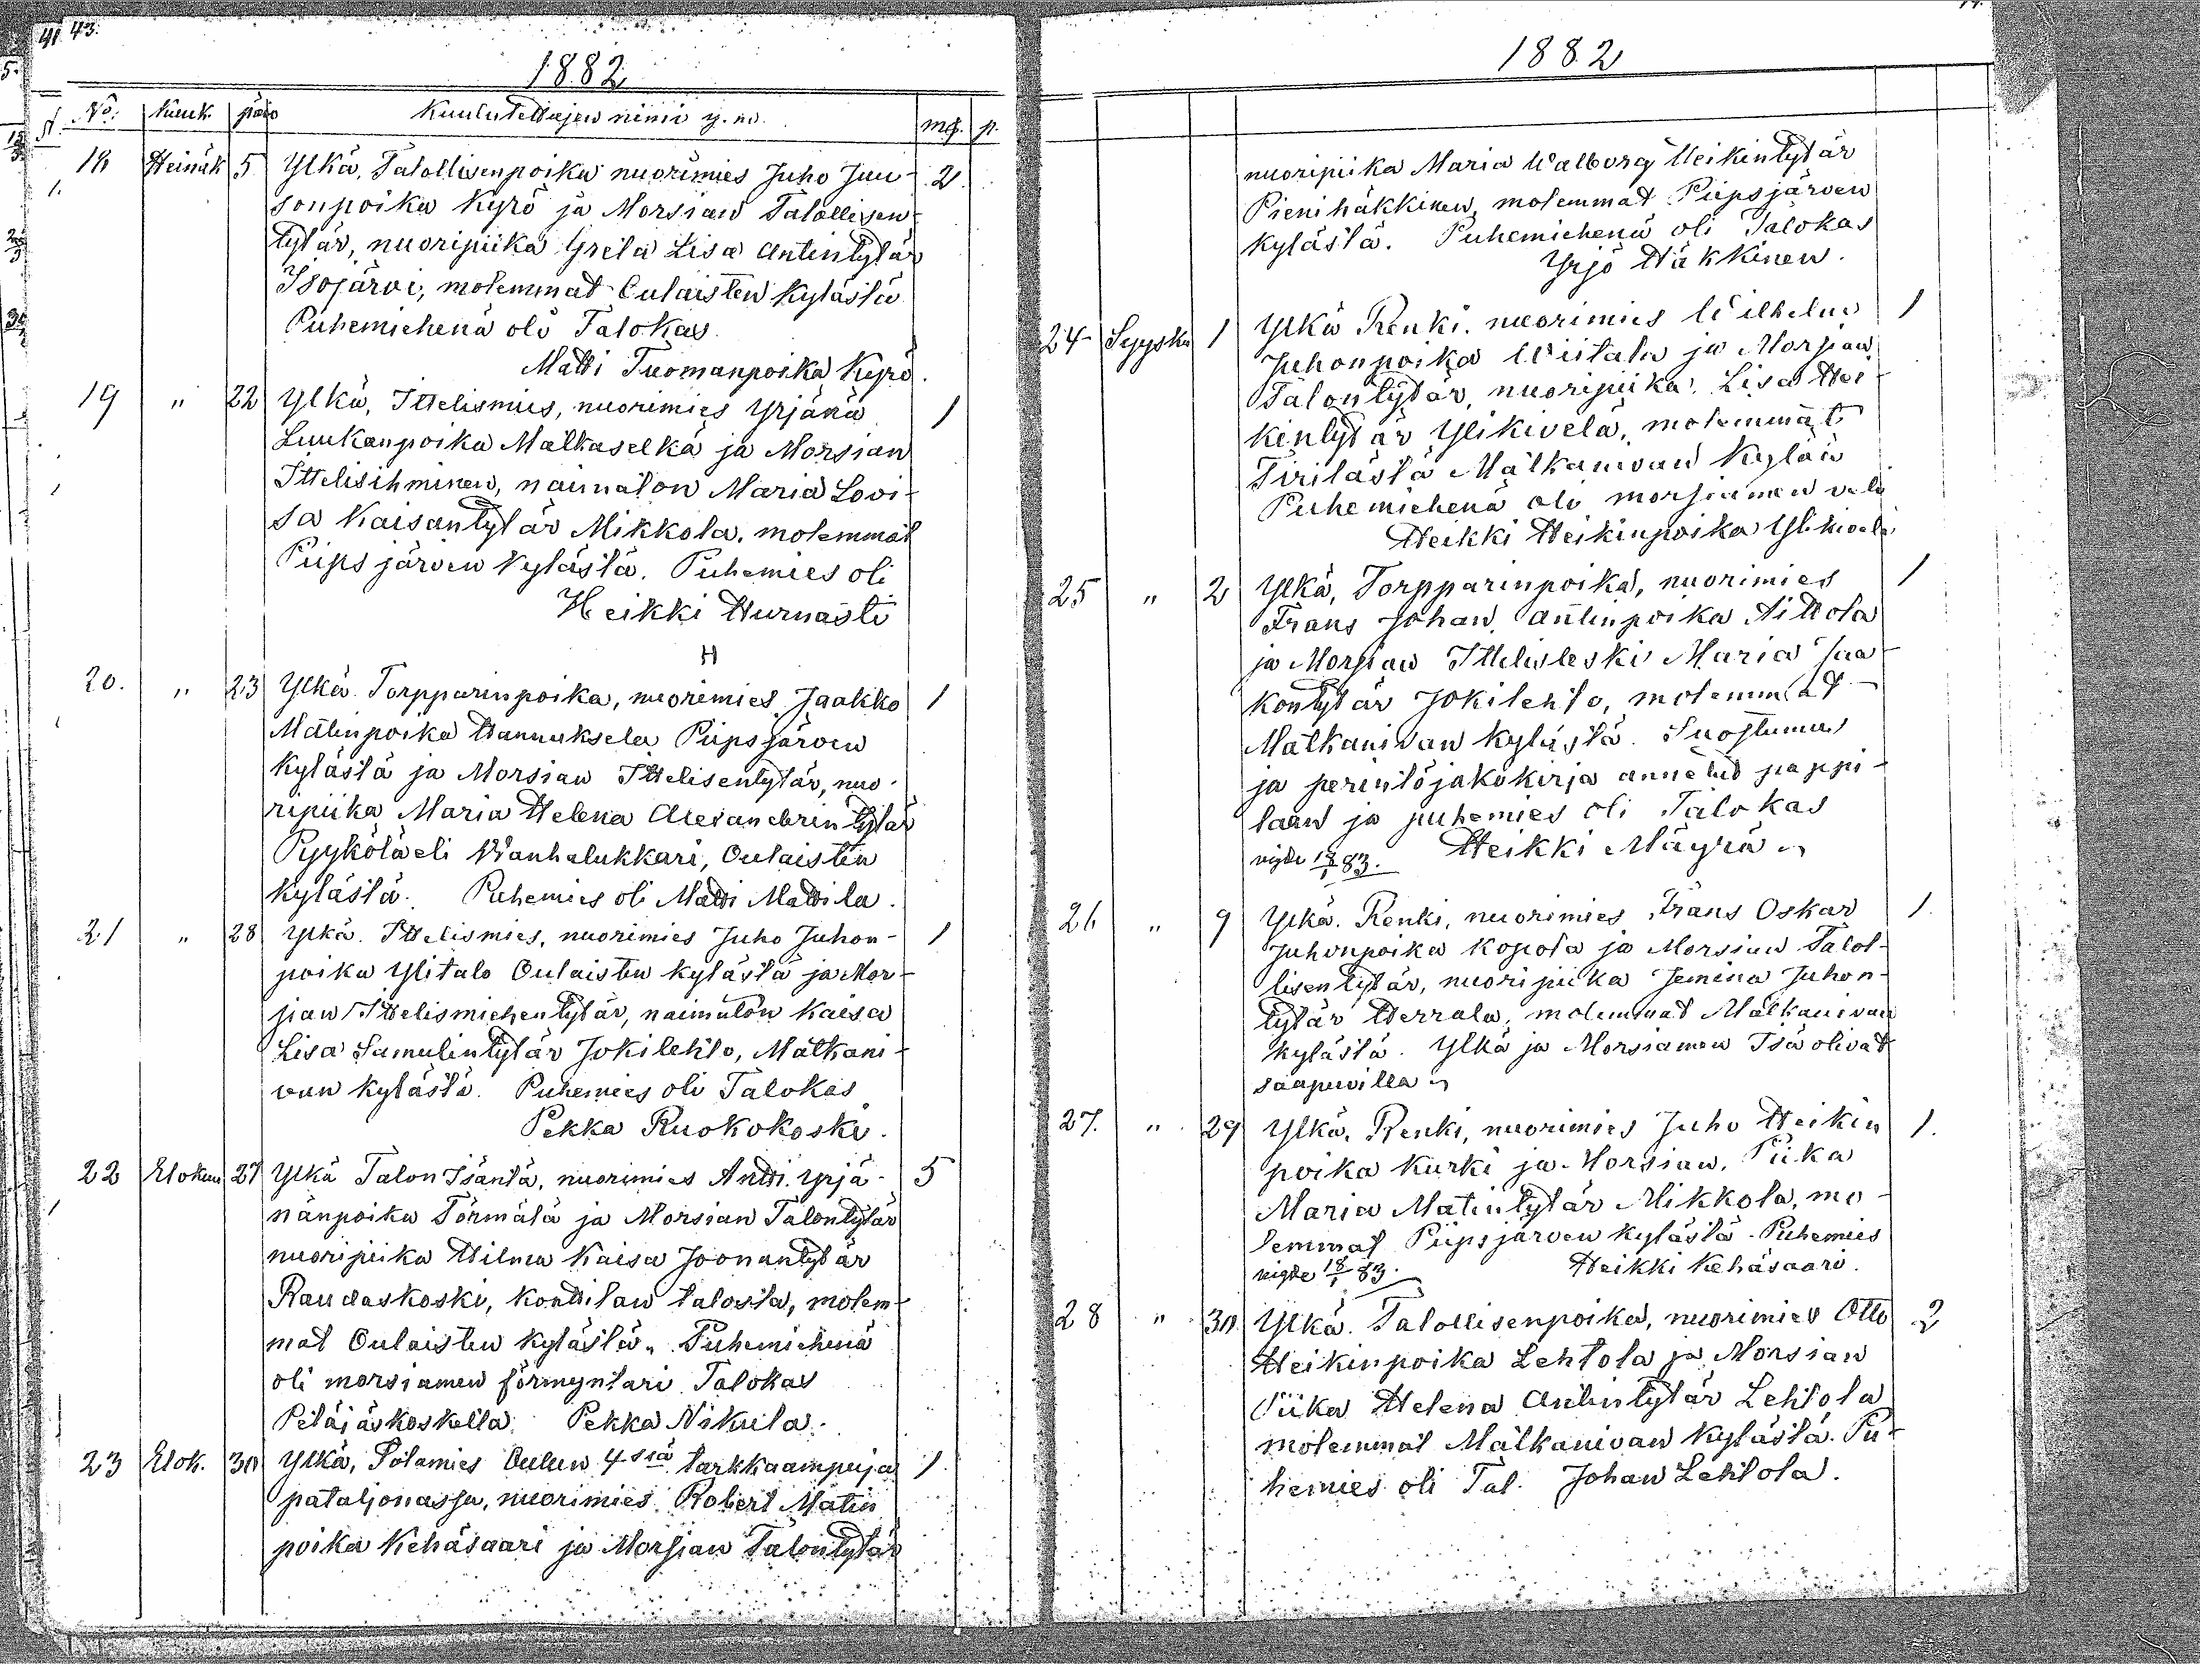 43.
1882
No: Kuuk. päiv Kuulutettujen nimi y. m. mk. p.
18 Heinäk 5 Ylkä, Talollisenpoika nuorimies Juho Juu- 2
sonpoika Kyrö ja Morsian Talollisen-
tytär, nuoripiika Greta Lisa Antintytär
Isojärvi, molemmat Oulaisten kylästä
Puhemiehenä oli Talokas
Matti Tuomanpoika Kyrö.
19 " 22 Ylkä, Ittelismies, nuorimies Yrjänä 1
Luukanpoika Matkaselkä ja Morsian
Ittelisihminen, naimaton Maria Lovi-
sa Kaisantytär Mikkola, molemmat
Piipsjärven kylästä. Puhemies oli
Heikki Hurnasti
H
20. " 23 Ylkä Torpparinpoika, nuorimies Jaakko 1
Matinpoika Hannuksela Piipsjärven
kylästä ja Morsian Ittelisentytär, nuo-
ripiika Maria Helena Alexandrintytär
Pyykölä eli Wanhalukkari, Oulaisten
kylästä. Puhemies oli Matti Mattila.
21 " 28 Ylkä. Ittelismies, nuorimies Juho Juhon- 1
poika Ylitalo Oulaisten kylästä ja Mor-
sian Ittelismiehentytär, naimatön Kaisa
Lisa Samulintytär Jokilehto, Matkani-
van kylästä. Puhemies oli Talokas
Pekka Ruokokoski.
22 Elokuu 27 Ylkä Talon Isäntä, nuorimies Antti Yrjä- 5
nänpoika Törmälä ja Morsian Talontytär
nuoripiika Hilma Kaisa Joonantytär
Raudaskoski, Konttilan talosta, molem-
mat Oulaisten kylästä. Puhemiehenä
oli morsiamen förmyntari Talokas
Petäjäskoskella Pekka Nikula.
23 Elok. 30 Ylkä, Sotamies Oulun 4siä tarkkaampuja 1
pataljonassa, nuorimies Robert Matin
poika Kehäsaari ja Morsian Talontytär
1882
nuoripiika Maria Walborg Heikintytär
Pienihäkkinen, molemmat Piipsjärven
kylästä. Puhemiehenä oli Talokas
Yrjö Häkkinen.
24 Syysku 1 Ylkä Renki. nuorimies Wilhelm 1
Juhonpoika Wiitala ja Morsian
Talontytär, nuoripiika, Lisa Hei-
kintytär Ylikivelä, molemmat
Tirilästä Matkanivan kylän
Puhemiehenä oli morsiamen veli
Heikki Heikinpoika Ylikivelä
25 " 2 Ylkä, Torpparinpoika, nuorimies 1
Frans Johan Antinpoika Aittola
ja Morsian Ittelisleski Maria Jaa-
kontytär Jokilehto, molemmat
Matkanivan kylästä. Suostumus
ja perintöjakokirja annetud pappi-
laan ja puhemies oli Talokas
vigde 83. Heikki Mäyrä
26 " 9 Ylkä. Renki, nuorimies Frans Oskar 1.
Juhonpoika Kopola ja Morsian Talol-
lisentytär, nuoripiika Jemina Juhon-
tytär Herrala, molemmat Matkanivan
kylästä. Ylkä ja Morsiamen Isä olivat
saapuvilla
27. " 29 Ylkä, Renki, nuorimies Juho Heikin 1.
poika Kurki ja Morsian, Piika
Maria Matintytär Mikkola, mo-
lemmat Piipsjärven kylästä. Puhemies
vigde 18/1 83. Heikki Kehäsaari.
28 " 30 Ylkä. Talollisenpoika, nuorimies Otto 2
Heikinpoika Lehtola ja Morsian
Piika Helena Antintytär Lehtola
molemmat Matkanivan kylästä. Pu-
hemies oli Tal. Johan Lehtola.